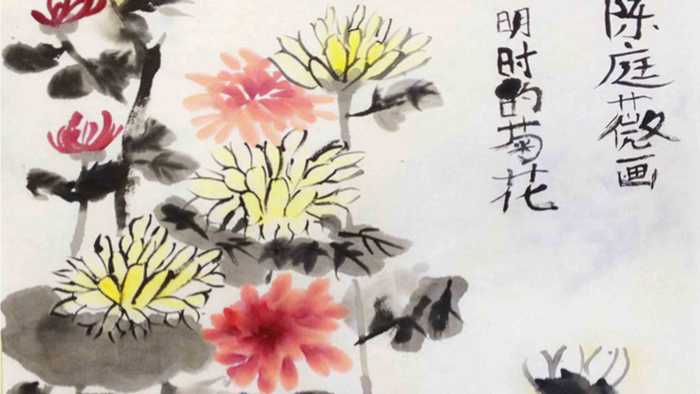 陈庭薇画
明时的菊花